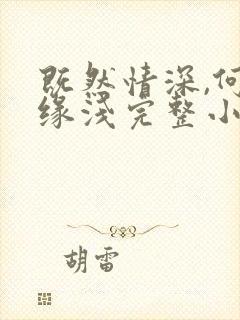 既然情深,何
缘浅完整小
胡雷